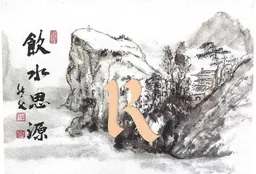 飲水思源
R